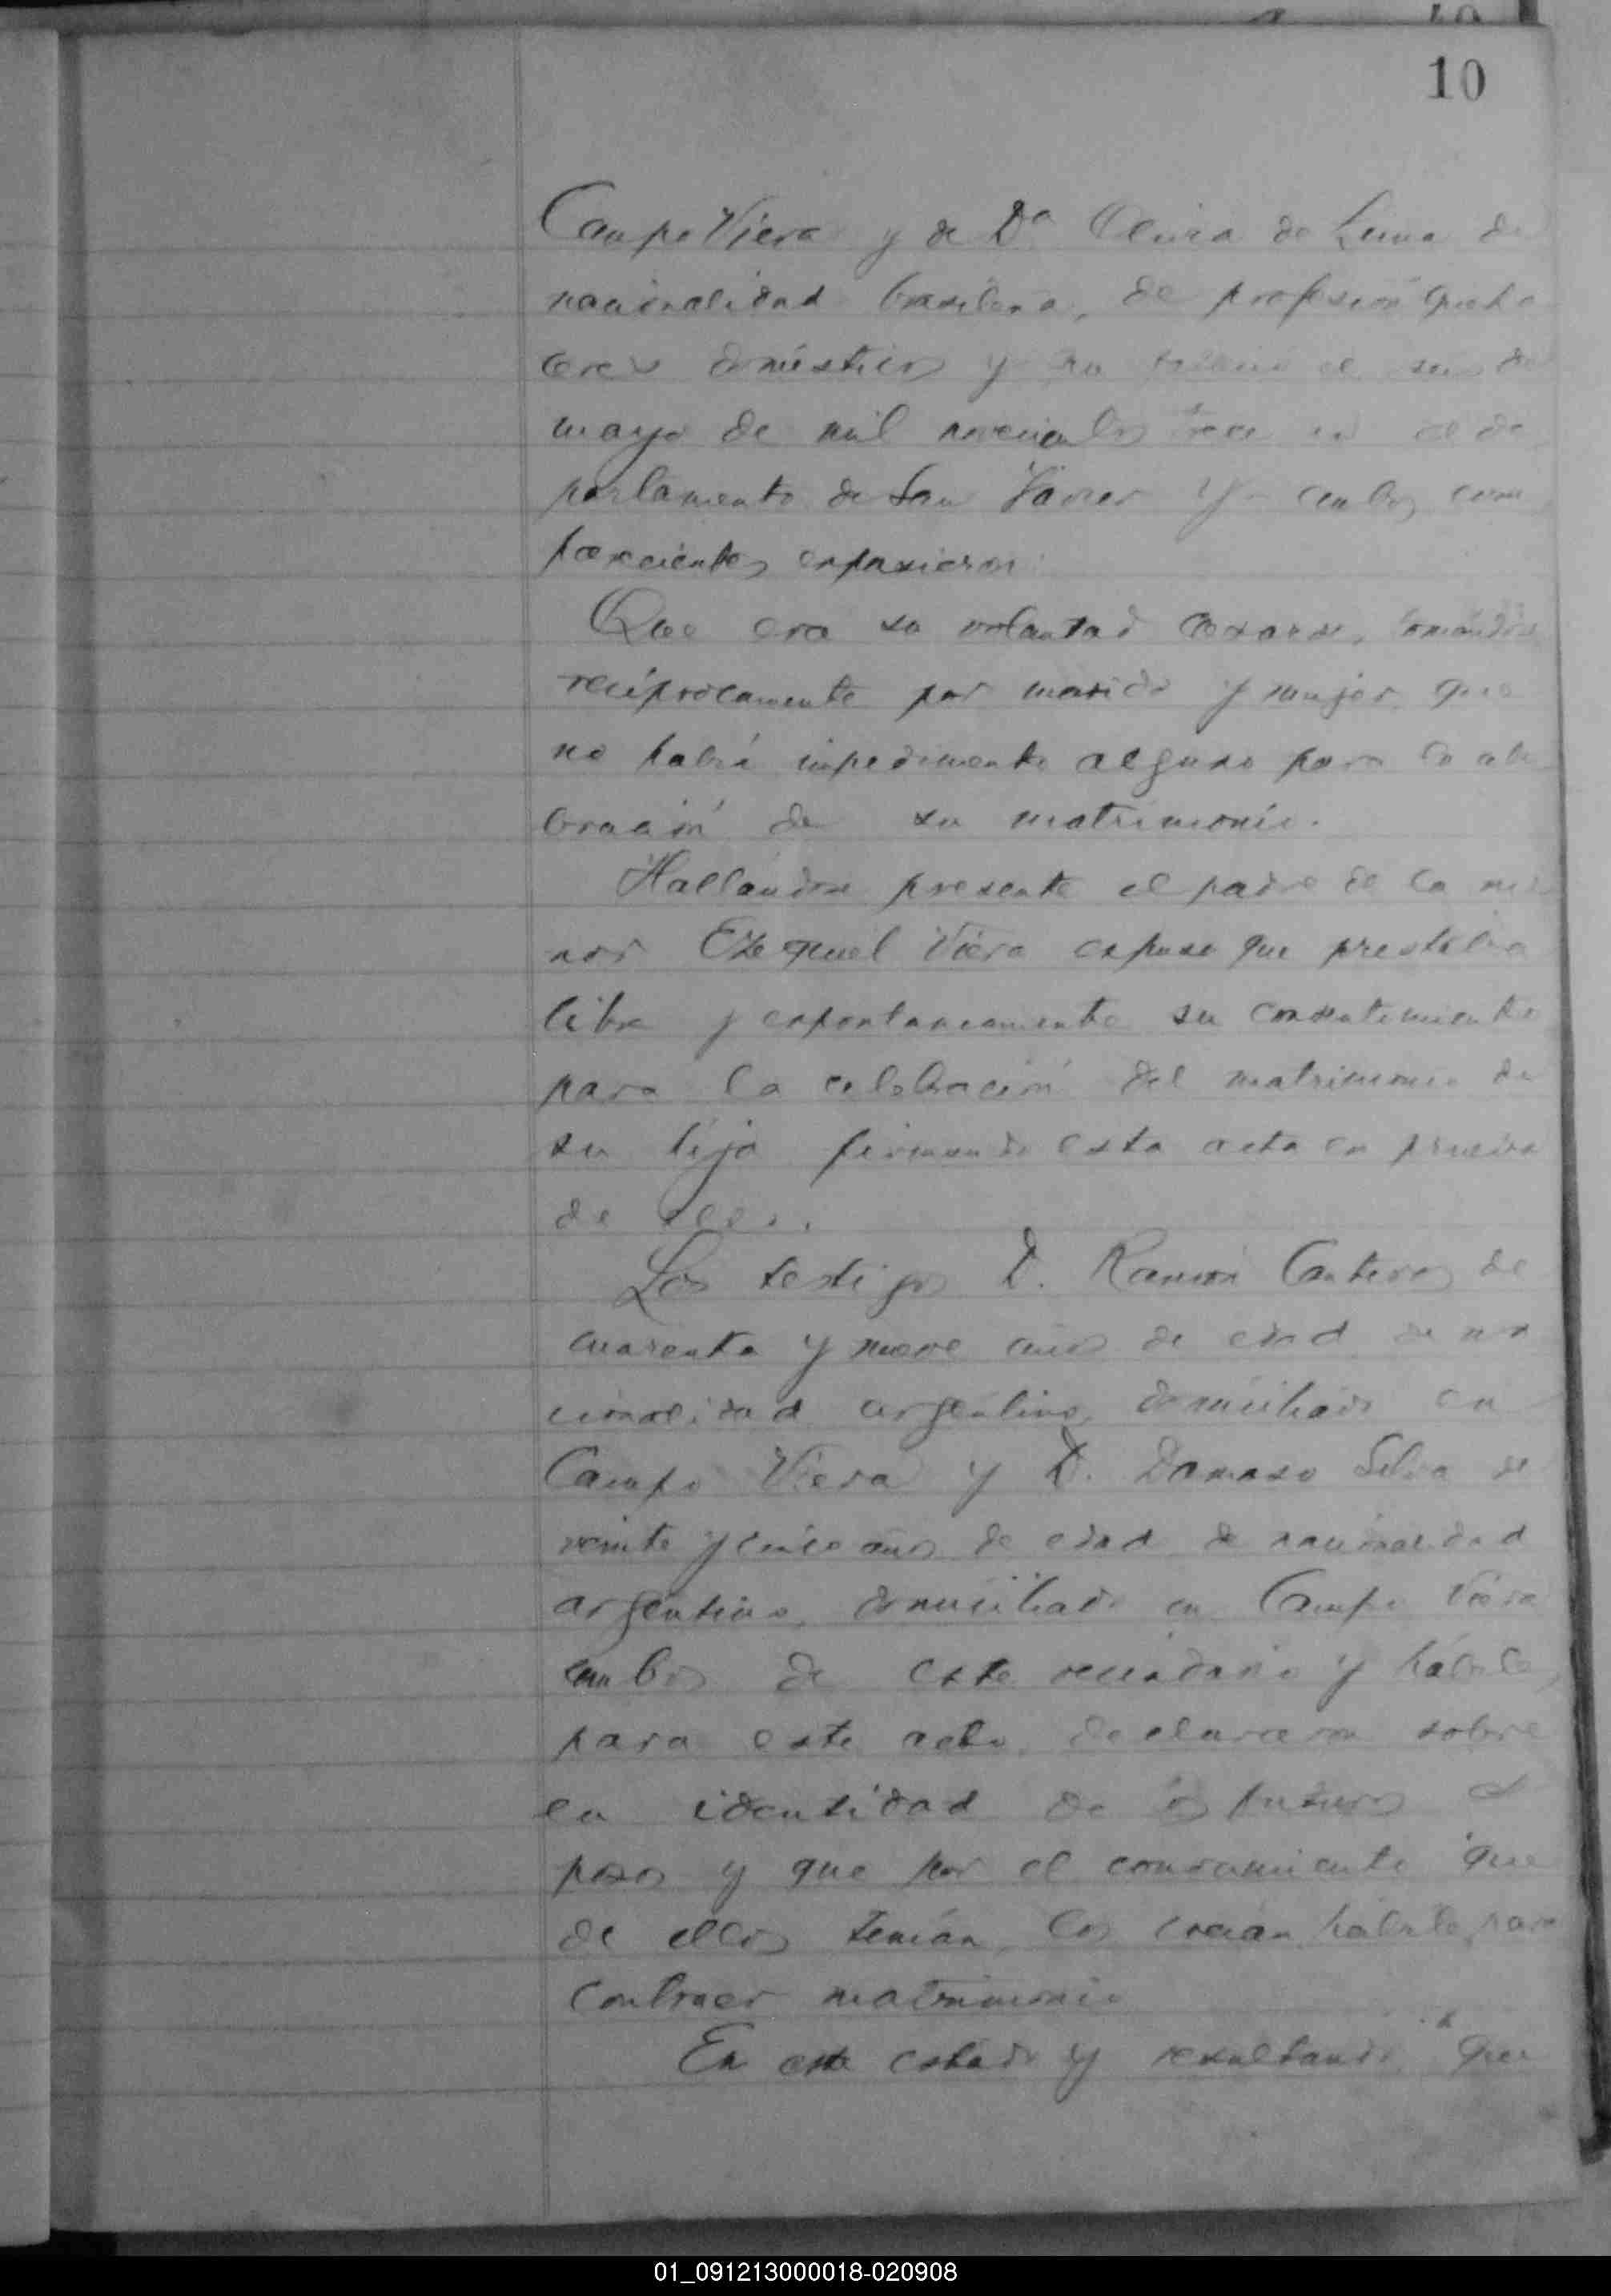 10
Campo Viera y de Dª Elvira de Lima de
nacionalidad brasilera, de profesión queha
ceres domésticos y el seis de
mayo de mil novecientos trece en el de
partamento de San Javier y ambos com
parecientes expusieron:
Que era su voluntad casarse, tomándose
recíprocamente por marido y mujer que
no había impedimento alguno para la cele
bración de su matrimonio.
Hallándose presente el padre de la me
nor Ezequiel Viera expuso que prestaba
libre y expontaneamente su consentimiento
para la celebración del matrimonio de
su hija firmando esta acta en prueba
de ello.
Los testigos D. Ramón Cantero de
cuarenta y nueve años de edad de na
cionalidad argentino, domiciliado en
Campo Viera y D. Damaso Silva de
veinte y cinco años de edad de nacionalidad
argentino, domiciliado en Campo Viera
ambos de este vecindario y hábiles
para este acto, declararon sobre
la identidad de los futuros es
posos y que por el conocimiento que
de ellos tenían, los creían hábiles para
contraer matrimonio
En este estado y resultando que
01_091213000018-020908